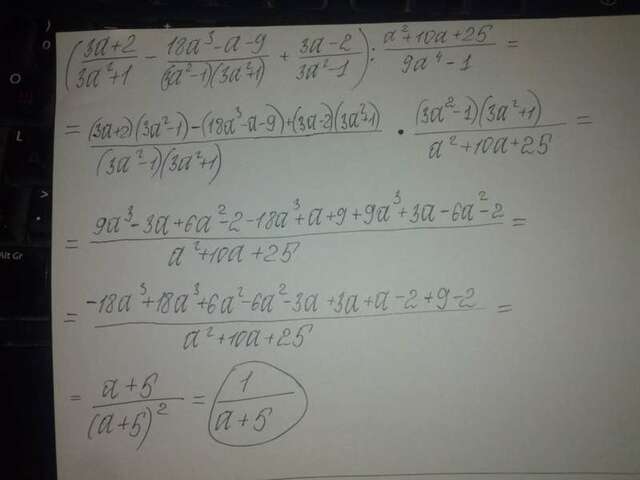 (3a+2/3a²+1 − 18a³−a−9/(3a²−1)(3a²+1) + 3a−2/3a²−1) : a²+10a+25/9a⁴−1 =
= (3a+2)(3a²−1)−(18a³−a−9)+(3a−2)(3a²+1)/(3a²−1)(3a²+1) · (3a²−1)(3a²+1)/a²+10a+25 =
= 9a³−3a+6a²−2−18a³+a+9+9a³+3a−6a²−2/a²+10a+25 =
= −18a³+18a³+6a²−6a²−3a+3a+a−2+9−2/a²+10a+25 =
= a+5/(a+5)² = 1/a+5
Alt Gr